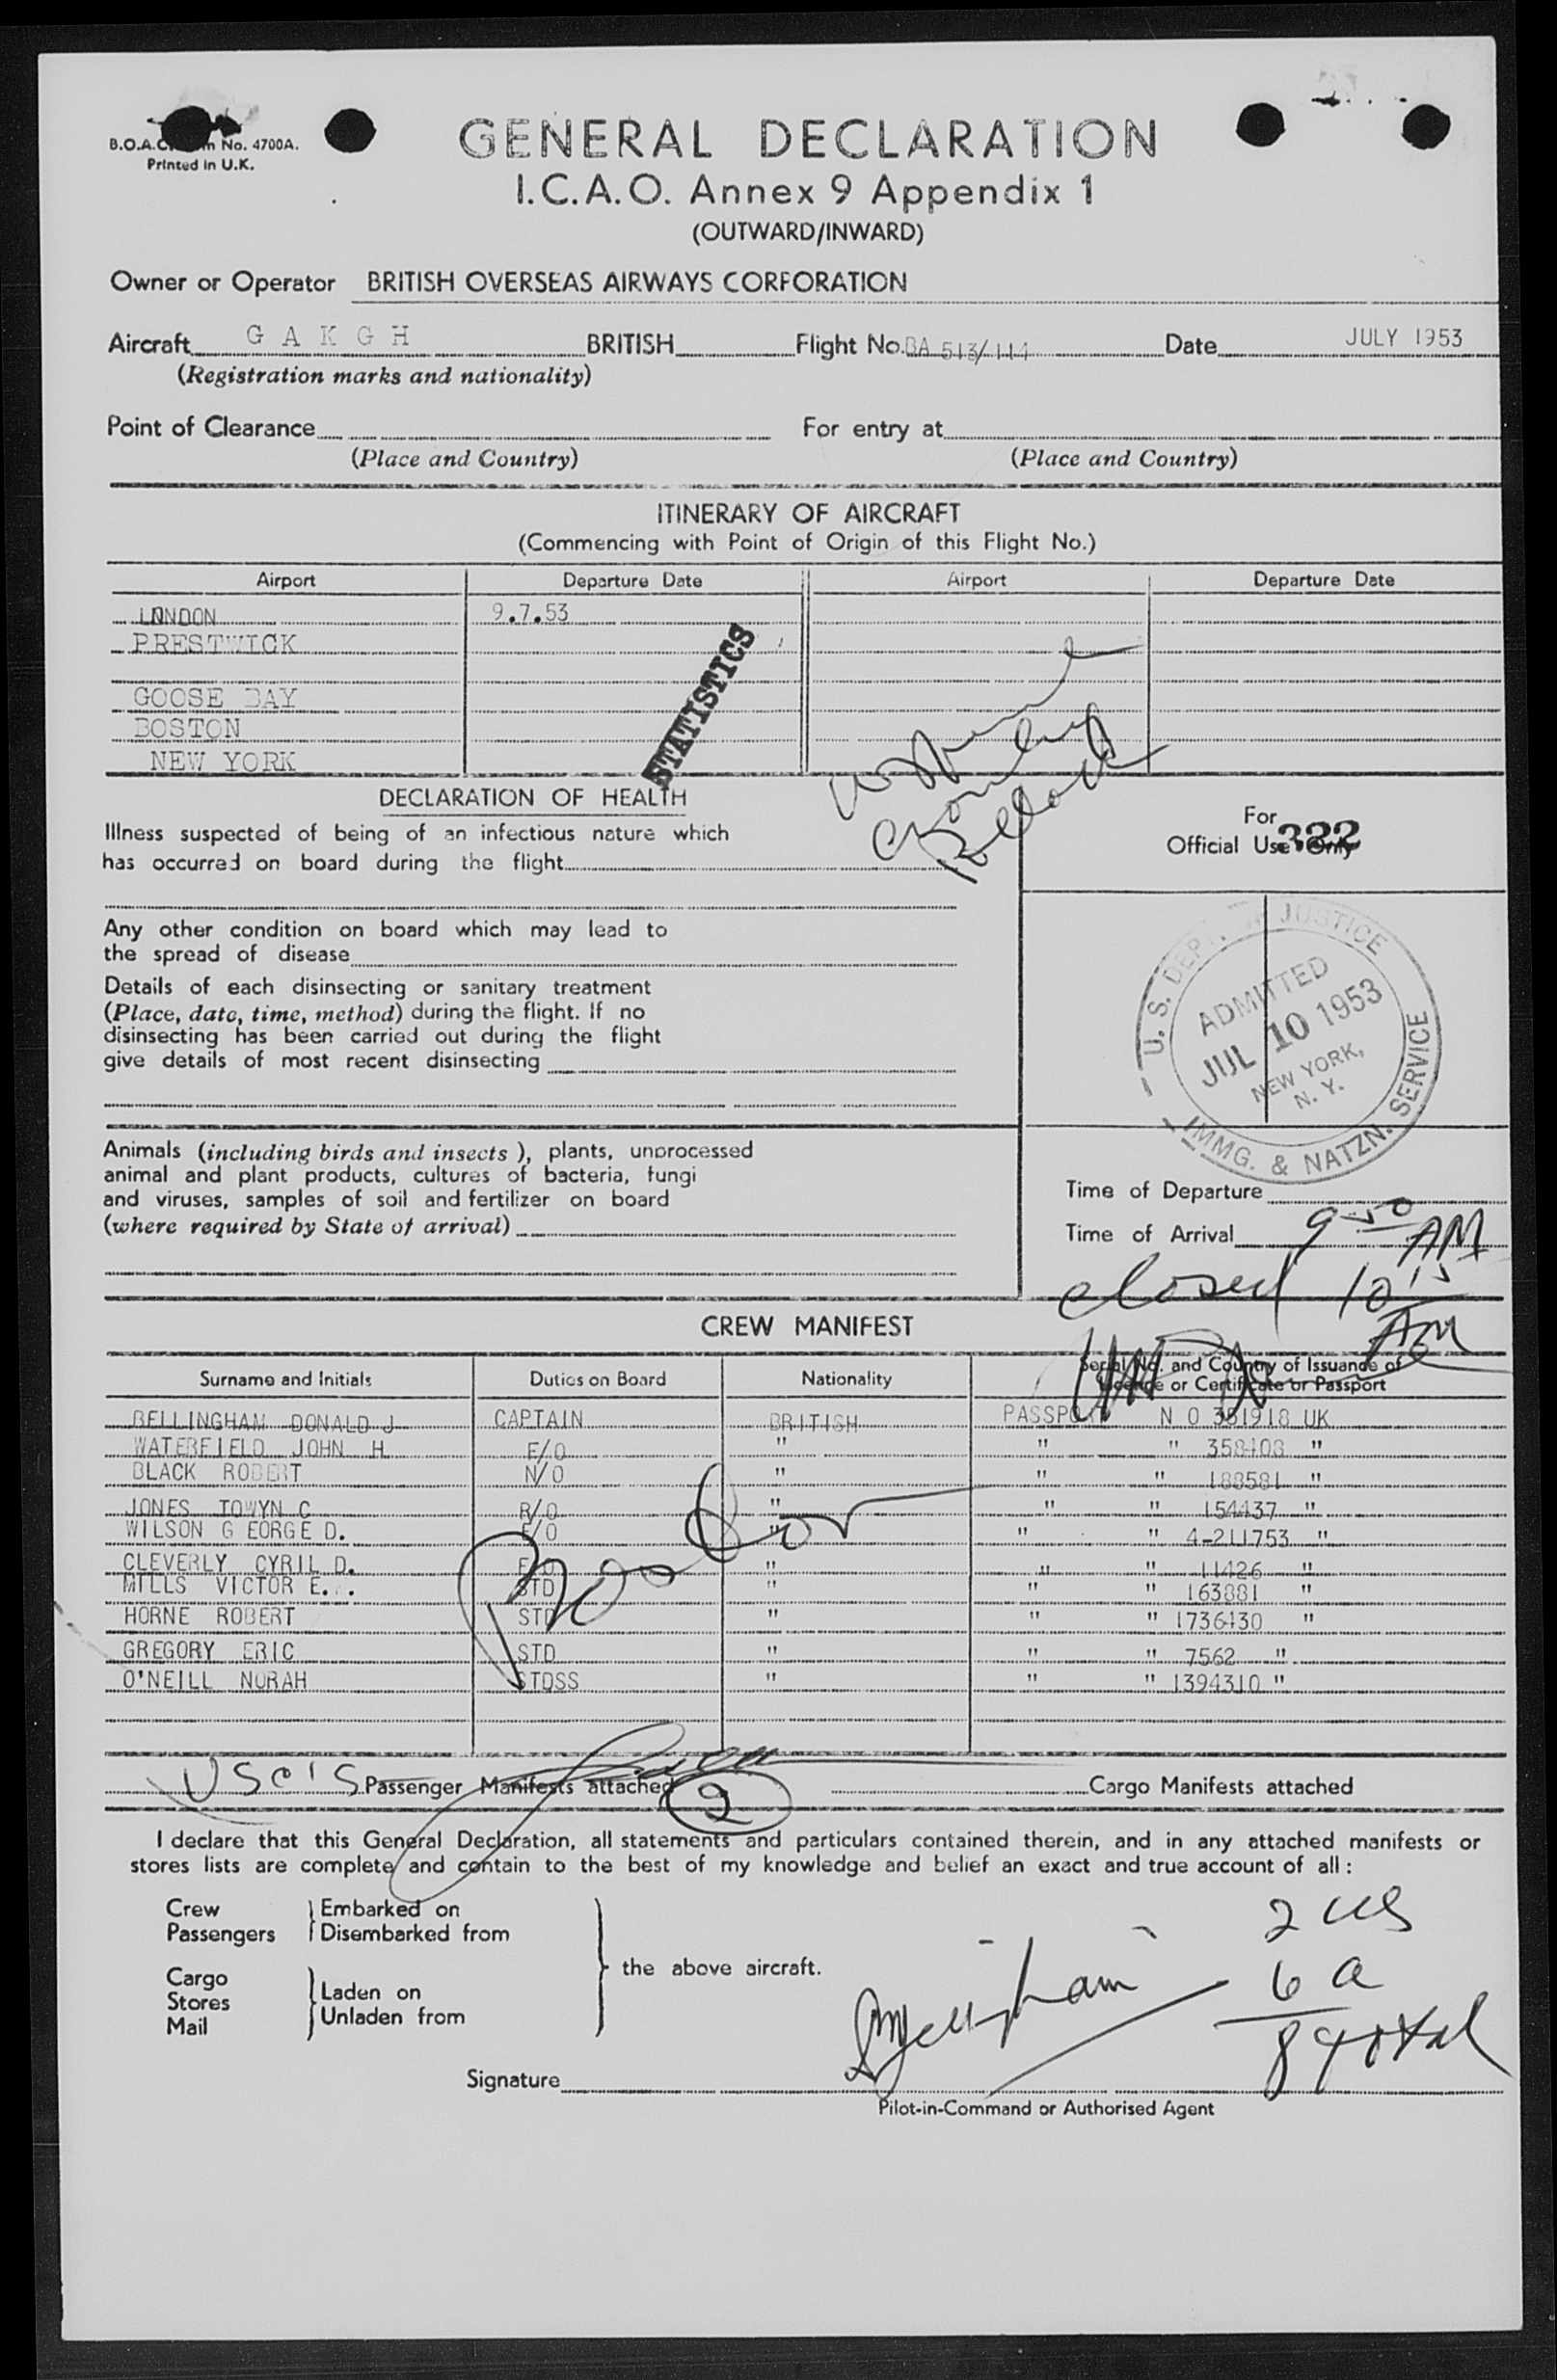 B.O.A.C. No. 4700A.
Printed in U.K.
GENERAL DECLARATION
I.C.A.O. Annex 9 Appendix 1
(OUTWARD/INWARD)
Owner or Operator BRITISH OVERSEAS AIRWAYS CORPORATION
Aircraft G A K G H BRITISH Flight No. BA 513/114 Date JULY 1953
(Registration marks and nationality)
Point of Clearance For entry at
(Place and Country) (Place and Country)
ITINERARY OF AIRCRAFT
(Commencing with Point of Origin of this Flight No.)
Airport Departure Date Airport Departure Date
LONDON 9.7.53
PRESTWICK
GOOSE BAY
BOSTON
NEW YORK
STATISTICS
DECLARATION OF HEALTH
Illness suspected of being of an infectious nature which
has occurred on board during the flight
For
Official Use Only
322
Any other condition on board which may lead to
the spread of disease
Details of each disinsecting or sanitary treatment
(Place, date, time, method) during the flight. If no
disinsecting has been carried out during the flight
give details of most recent disinsecting
U. S. DEPT. JUSTICE
ADMITTED
JUL 10 1953
NEW YORK,
N. Y.
IMMG. & NATZN. SERVICE
Animals (including birds and insects), plants, unprocessed
animal and plant products, cultures of bacteria, fungi
and viruses, samples of soil and fertilizer on board
(where required by State of arrival)
Time of Departure
Time of Arrival 9 50 AM
closed 10 15
AM
CREW MANIFEST
Surname and Initials Duties on Board Nationality Serial No. and Country of Issuance of
Licence or Certificate or Passport
BELLINGHAM DONALD J CAPTAIN BRITISH PASSPORT N O 381918 UK
WATERFIELD JOHN H F/O " " " 358403 "
BLACK ROBERT N/O " " " 188581 "
JONES TOWYN C R/O " " " 154437 "
WILSON G EORGE D. E/O " " " 4-211753 "
CLEVERLY CYRIL D. " " " 11426 "
MILLS VICTOR E. STD " " " 163881 "
HORNE ROBERT STD " " " 1736430 "
GREGORY ERIC STD " " " 7562 "
O'NEILL NORAH STDSS " " " 1394310 "
Passenger Manifests attached 2 Cargo Manifests attached
I declare that this General Declaration, all statements and particulars contained therein, and in any attached manifests or
stores lists are complete and contain to the best of my knowledge and belief an exact and true account of all:
Crew Embarked on
Passengers Disembarked from
the above aircraft.
Cargo
Stores Laden on
Mail Unladen from
2 US
6 a
8 total
Signature
Pilot-in-Command or Authorised Agent